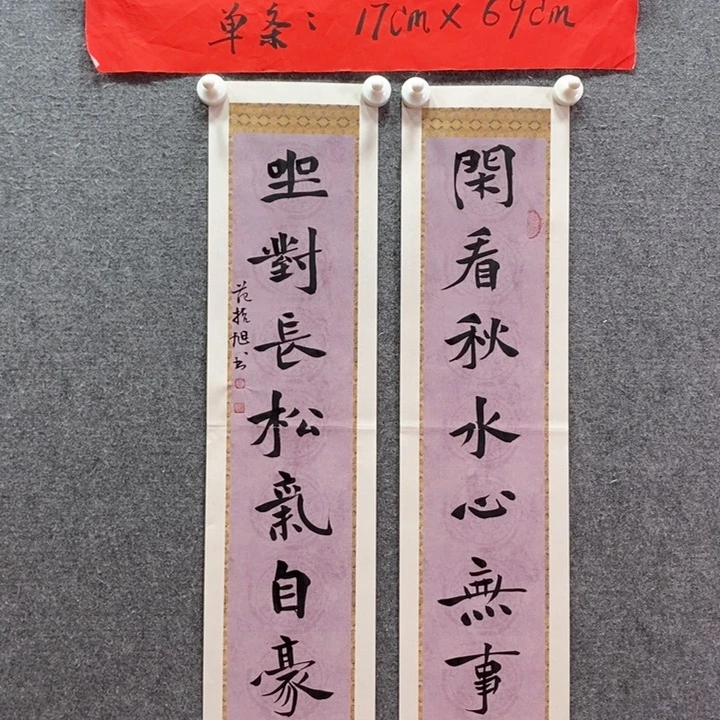 单条：17cm×69cm
閑看秋水心無事
坐對長松氣自豪
范挖旭书